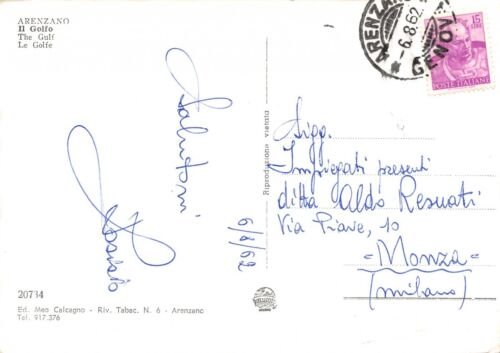 ARENZANO
Il Golfo
The Gulf
Le Golfe
ARENZANO
-6.8.62
GENOVA
15
POSTE ITALIANE
Saluti
6/8/62
Riproduzione vietata
Sigg.
Impiegati presenti
ditta Aldo Resnati
Via Piave, 10
- Monza -
(Milano)
20734
Ed. Meo Calcagno - Riv. Tabac. N. 6 - Arenzano
Tel. 917.376